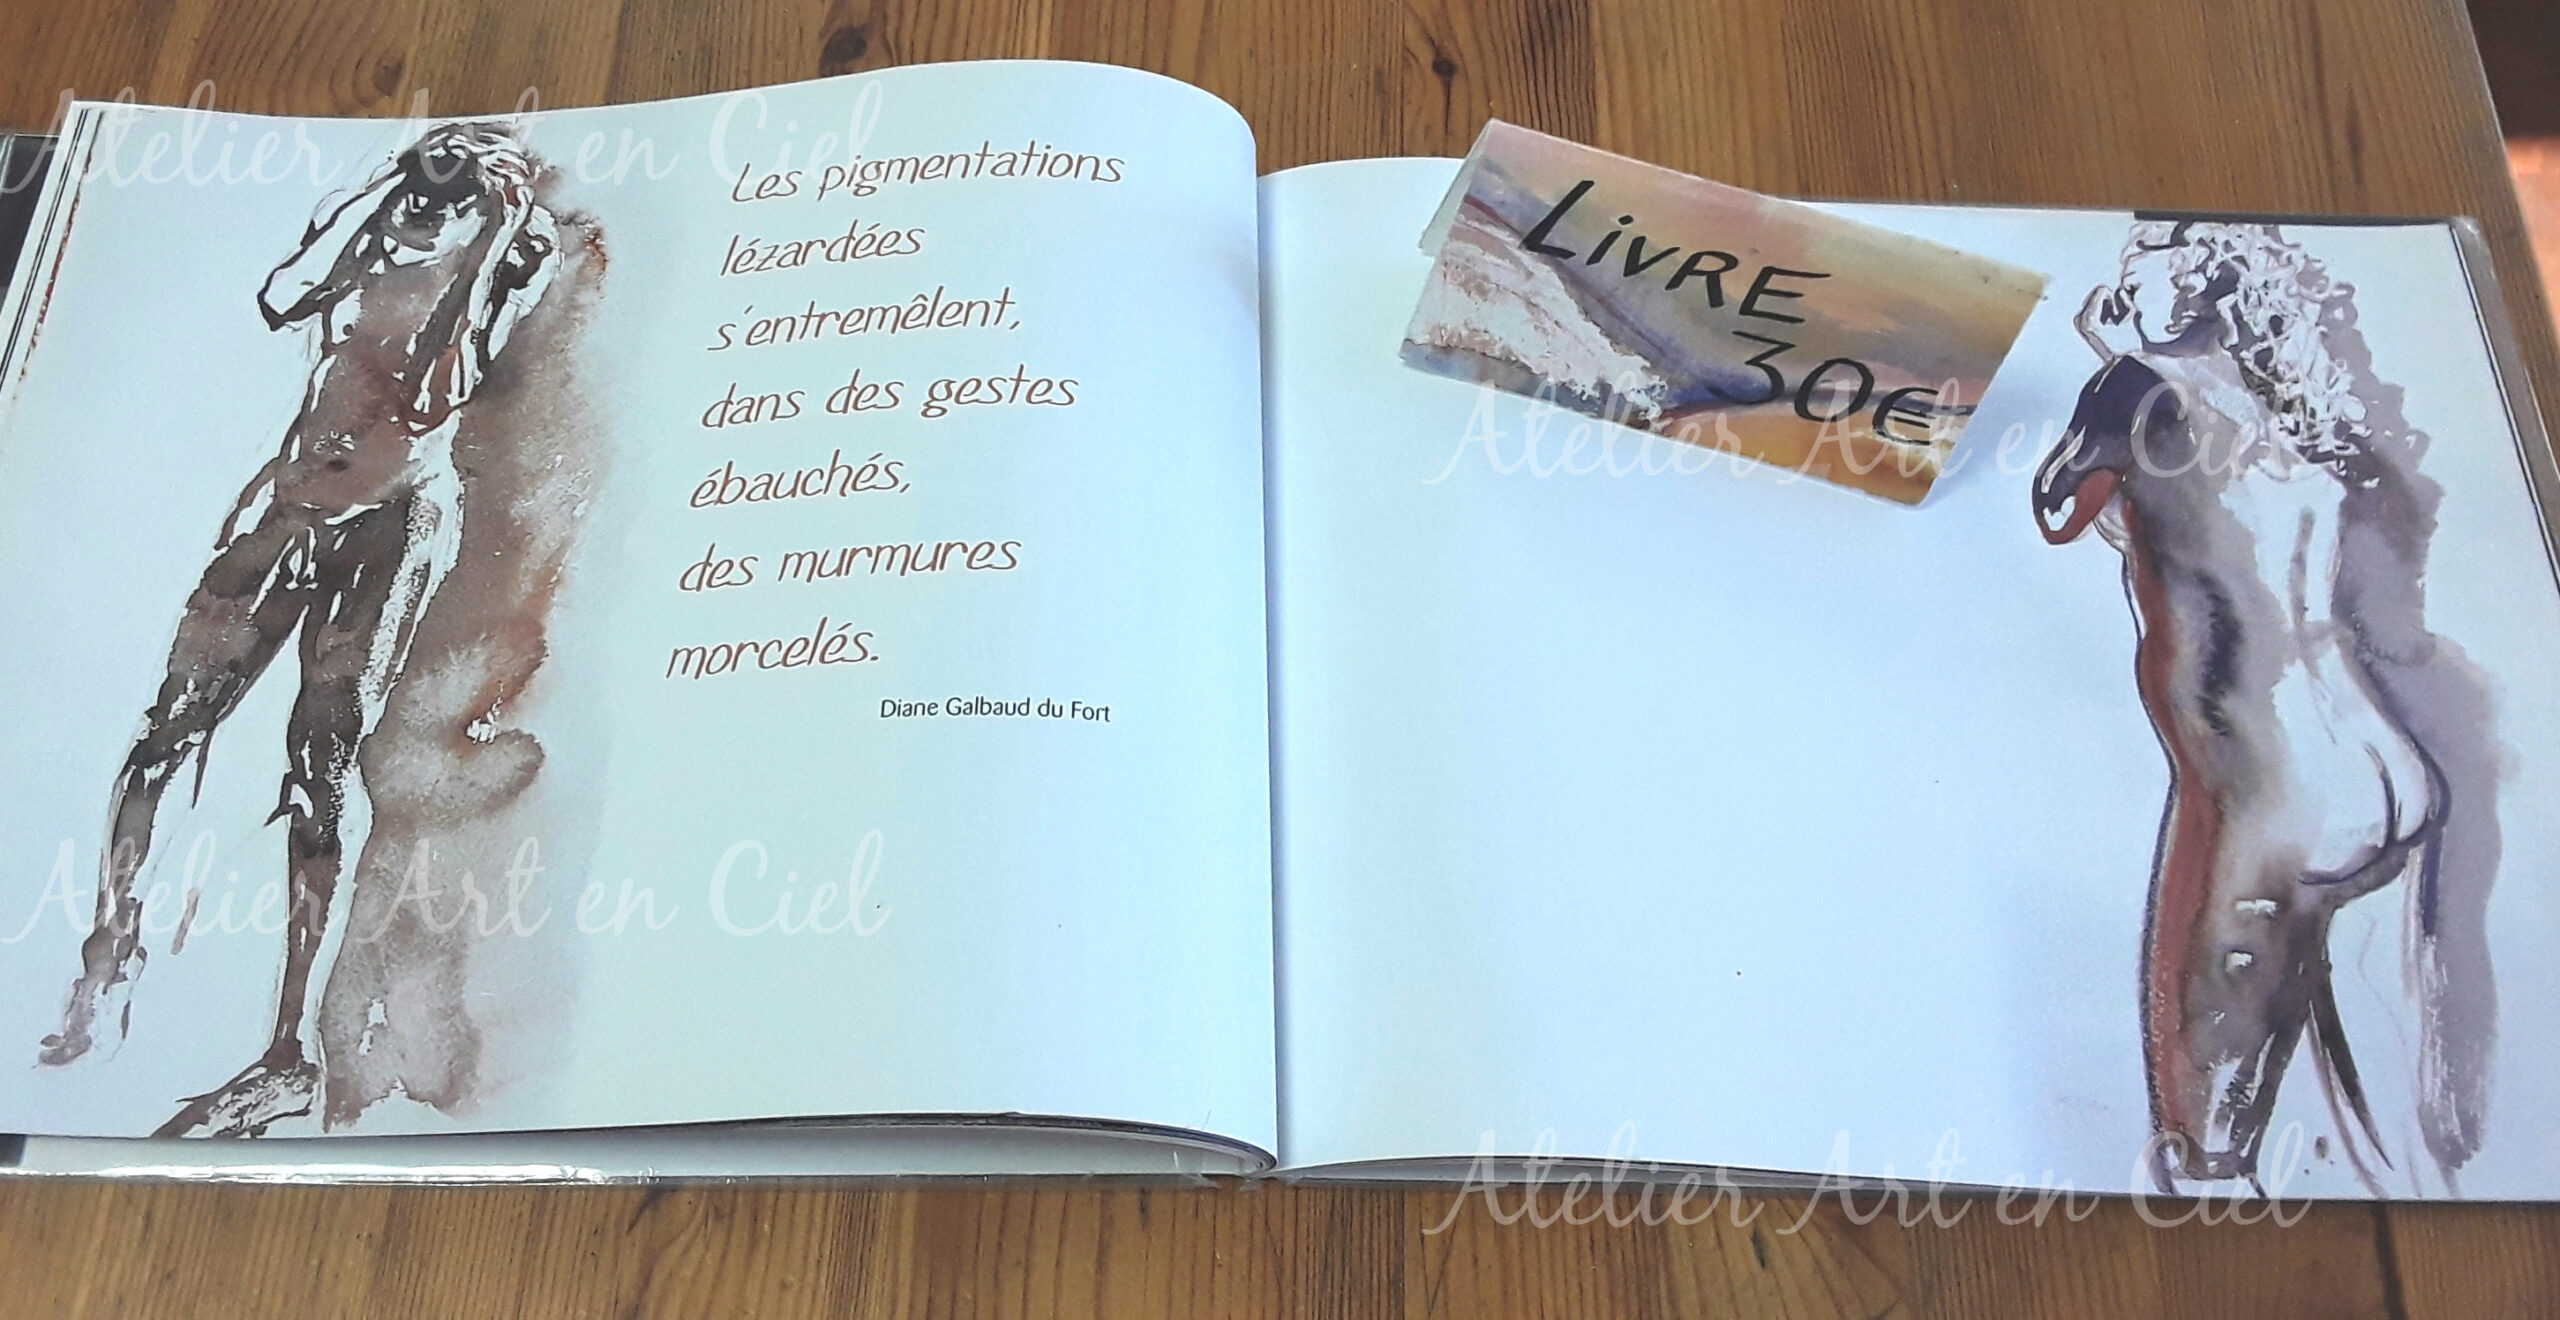 Atelier Art en Ciel
Les pigmentations
lézardées
s'entremêlent,
dans des gestes
ébauchés,
des murmures
morcelés.
Diane Galbaud du Fort
Atelier Art en Ciel
LIVRE
30€
Atelier Art en Ciel
Atelier Art en Ciel